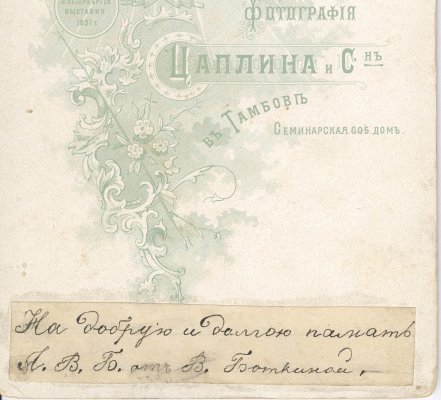 ВЫСТАВКУ
1891 г.
ФОТОГРАФІЯ
ЦАПЛИНА и С НЪ
въ ТАМБОВѢ
СЕМИНАРСКАЯ СОБ. ДОМЪ.
На добрую и долгою память
А. В. Б. отъ В. Боткиной,